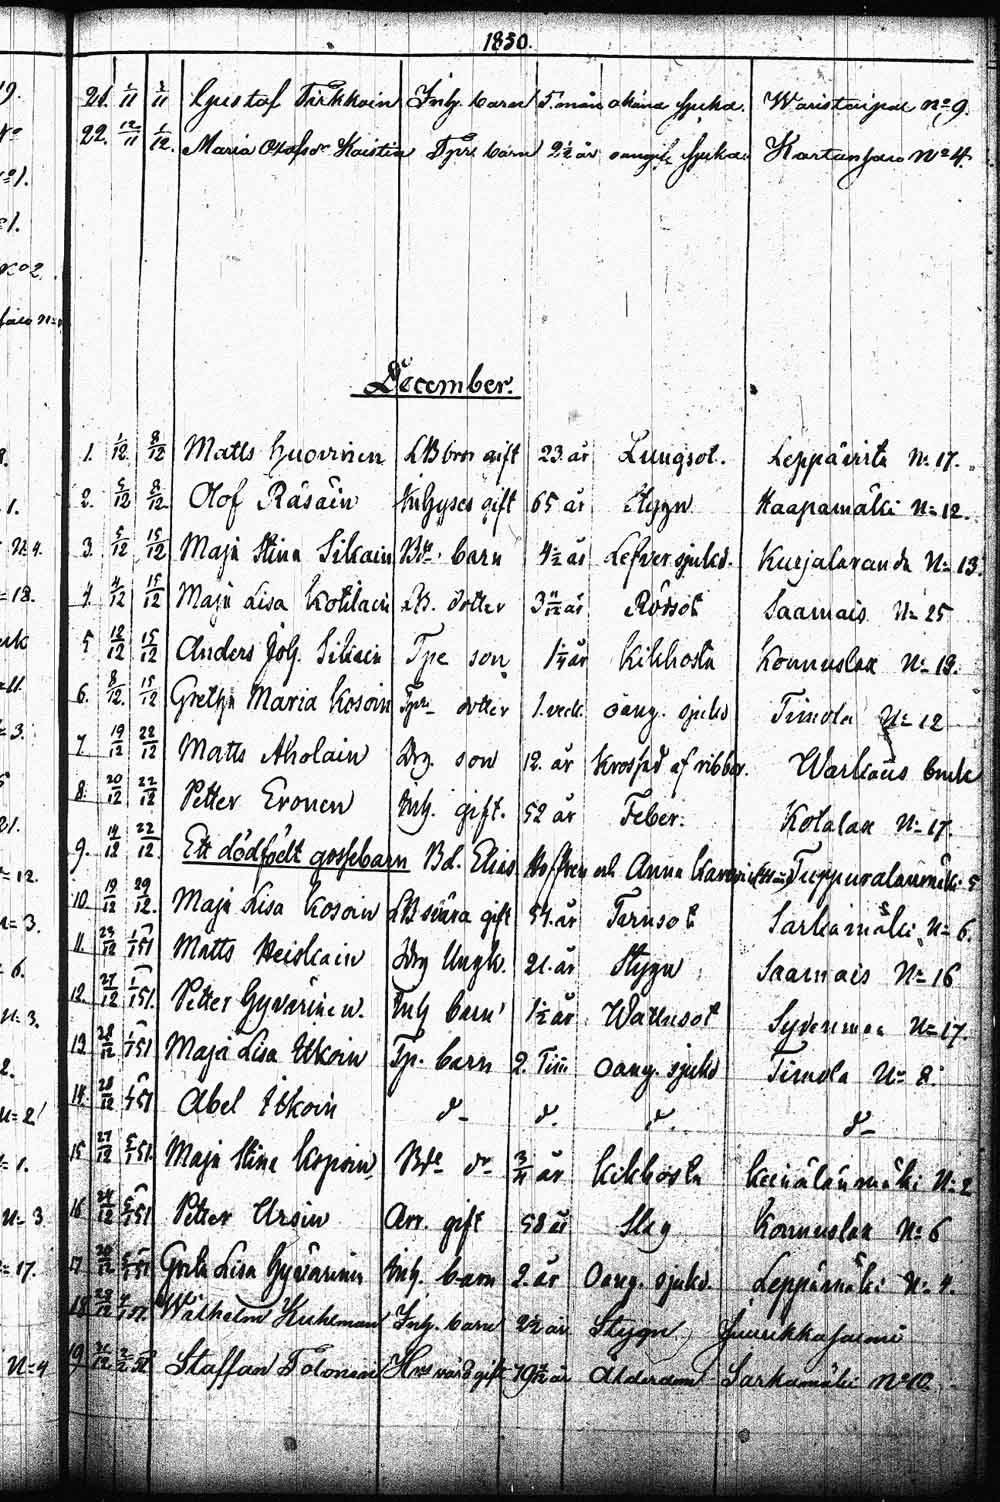 1850.
21. 1/11 3/11 Gustaf Tirkkoin Inh. barn 5. mån okänd sjukd. Waristaipal No 9.
22. 12/11 1/12. Maria Olofsdr Kaistin Tjrs. barn 2 1/2 år oangif. sjukd. Kartansalo No 4.
December.
1. 1/12. 8/12 Matts Huovinen LB bror gift 23 år Lungsot. Leppävirta No 17.
2. 5/12 8/12. Olof Räsäin Inhyses gift 65 år Stygn Haapamäki No 12.
3. 5/12 15/12 Maja Stina Sikain Bde. barn 4 1/2 år Lefver sjukd. Kurjalaranda No 13.
4. 4/12 15/12 Maja Lisa Kotilain LB. dotter 3 11/12 år Rödsot Saamais No 25
5 12/12 15/12 Anders Joh. Sikain Tpe son 1 1/4 år Kikhosta Konnuslax No 19.
6. 8/12. 15/12 Gretha Maria Kosoin Tprs dotter 1. veck. oang. sjukd Timola No 12
7 19/12 22/12 Matts Aholain Drg. son 12. år Krossad af ribbor. Warkaus bruk
8. 20/12 22/12 Petter Eronen Inh. gift. 52 år Feber. Kotalax No 17.
9. 14/12 22/12. Ett dödfödt gossebarn Bd. Elias Hoffren och Anna Tuppuralanmäki 5
10 19/12 29/12. Maja Lisa Kosoin LB svära gift 54. år Tarmsot Sarkamäki No 6.
11. 23/12 1/1 51 Matts Heiskain Drg Ungk. 21. år Stygn Saamais No 16
12. 27/12 1/1 51. Petter Hyvärinen. Inh barn 1 1/2 år Wattusot Syvänmaa No 17.
13 28/12 1/1 51 Maja Lisa Itkoin Tp. barn 2. Tim oang. sjukd Timola No 8.
14. 28/12 1/1 51 Abel Itkoin do do. do. do
15 27/12 5/1 51. Maja Stina Kopoin Bde do 3/4 år Kikhosta Keinälänmäki No 2
16 24/12 5/1 51 Petter Ursin Arr. gift 58 år Slag Konnuslax No 6
17 20/12 5/1 51 Greta Lisa Hyvärinen Inh. barn 2. år Oang. sjukd. Leppämäki No 4.
18 23/12 51. Wilhelm Kuhlman Inh. barn 2 1/2 år Stygn
19 Staffan Tolonen Hmsvärd gift 79 år Ålderdom Sarkamäki No 10.